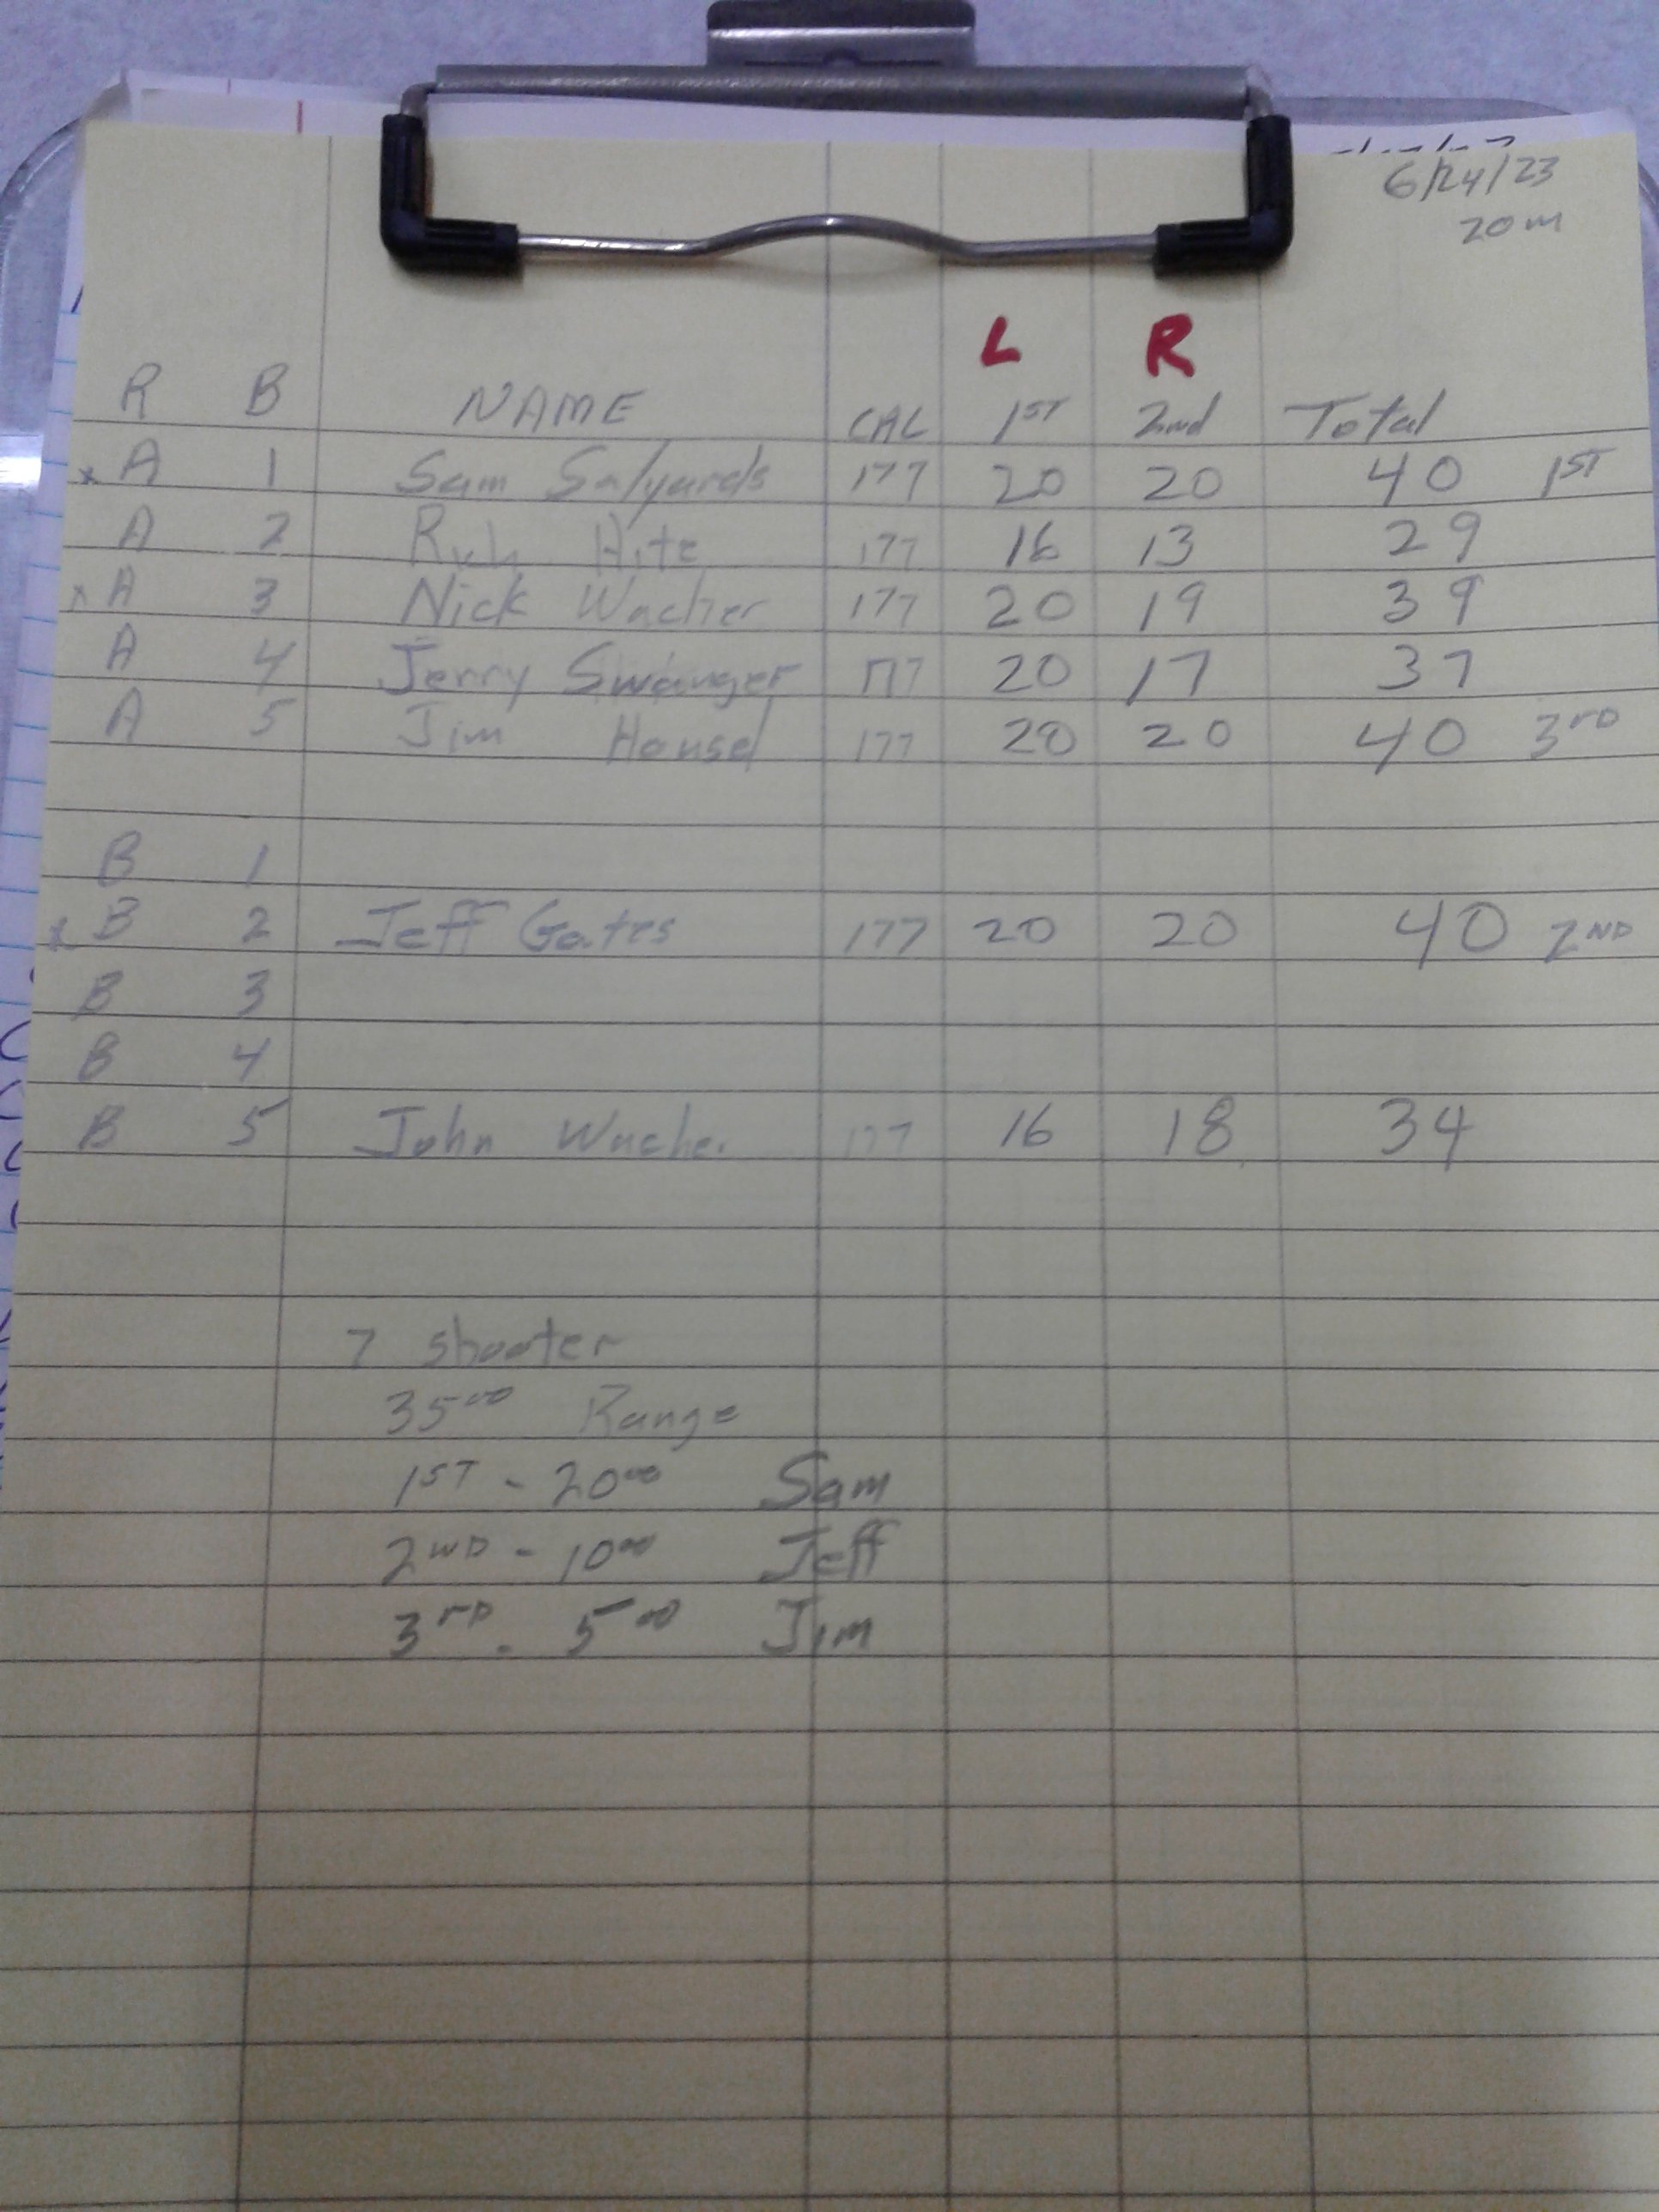 6/24/23
20m
L R
R B NAME CAL 1ST 2nd Total
x A 1 Sam Salyards 177 20 20 40 1ST
A 2 Hite 177 16 13 29
x A 3 Nick Wacher 177 20 19 39
A 4 Jerry Swanger 177 20 17 37
A 5 Jim Housel 177 20 20 40 3rd
B 1
x B 2 Jeff Gates 177 20 20 40 2ND
B 3
B 4
B 5 John Wacher 177 16 18 34
7 shooter
3500 Range
1ST - 2000 Sam
2ND - 1000 Jeff
3rd - 500 Jim